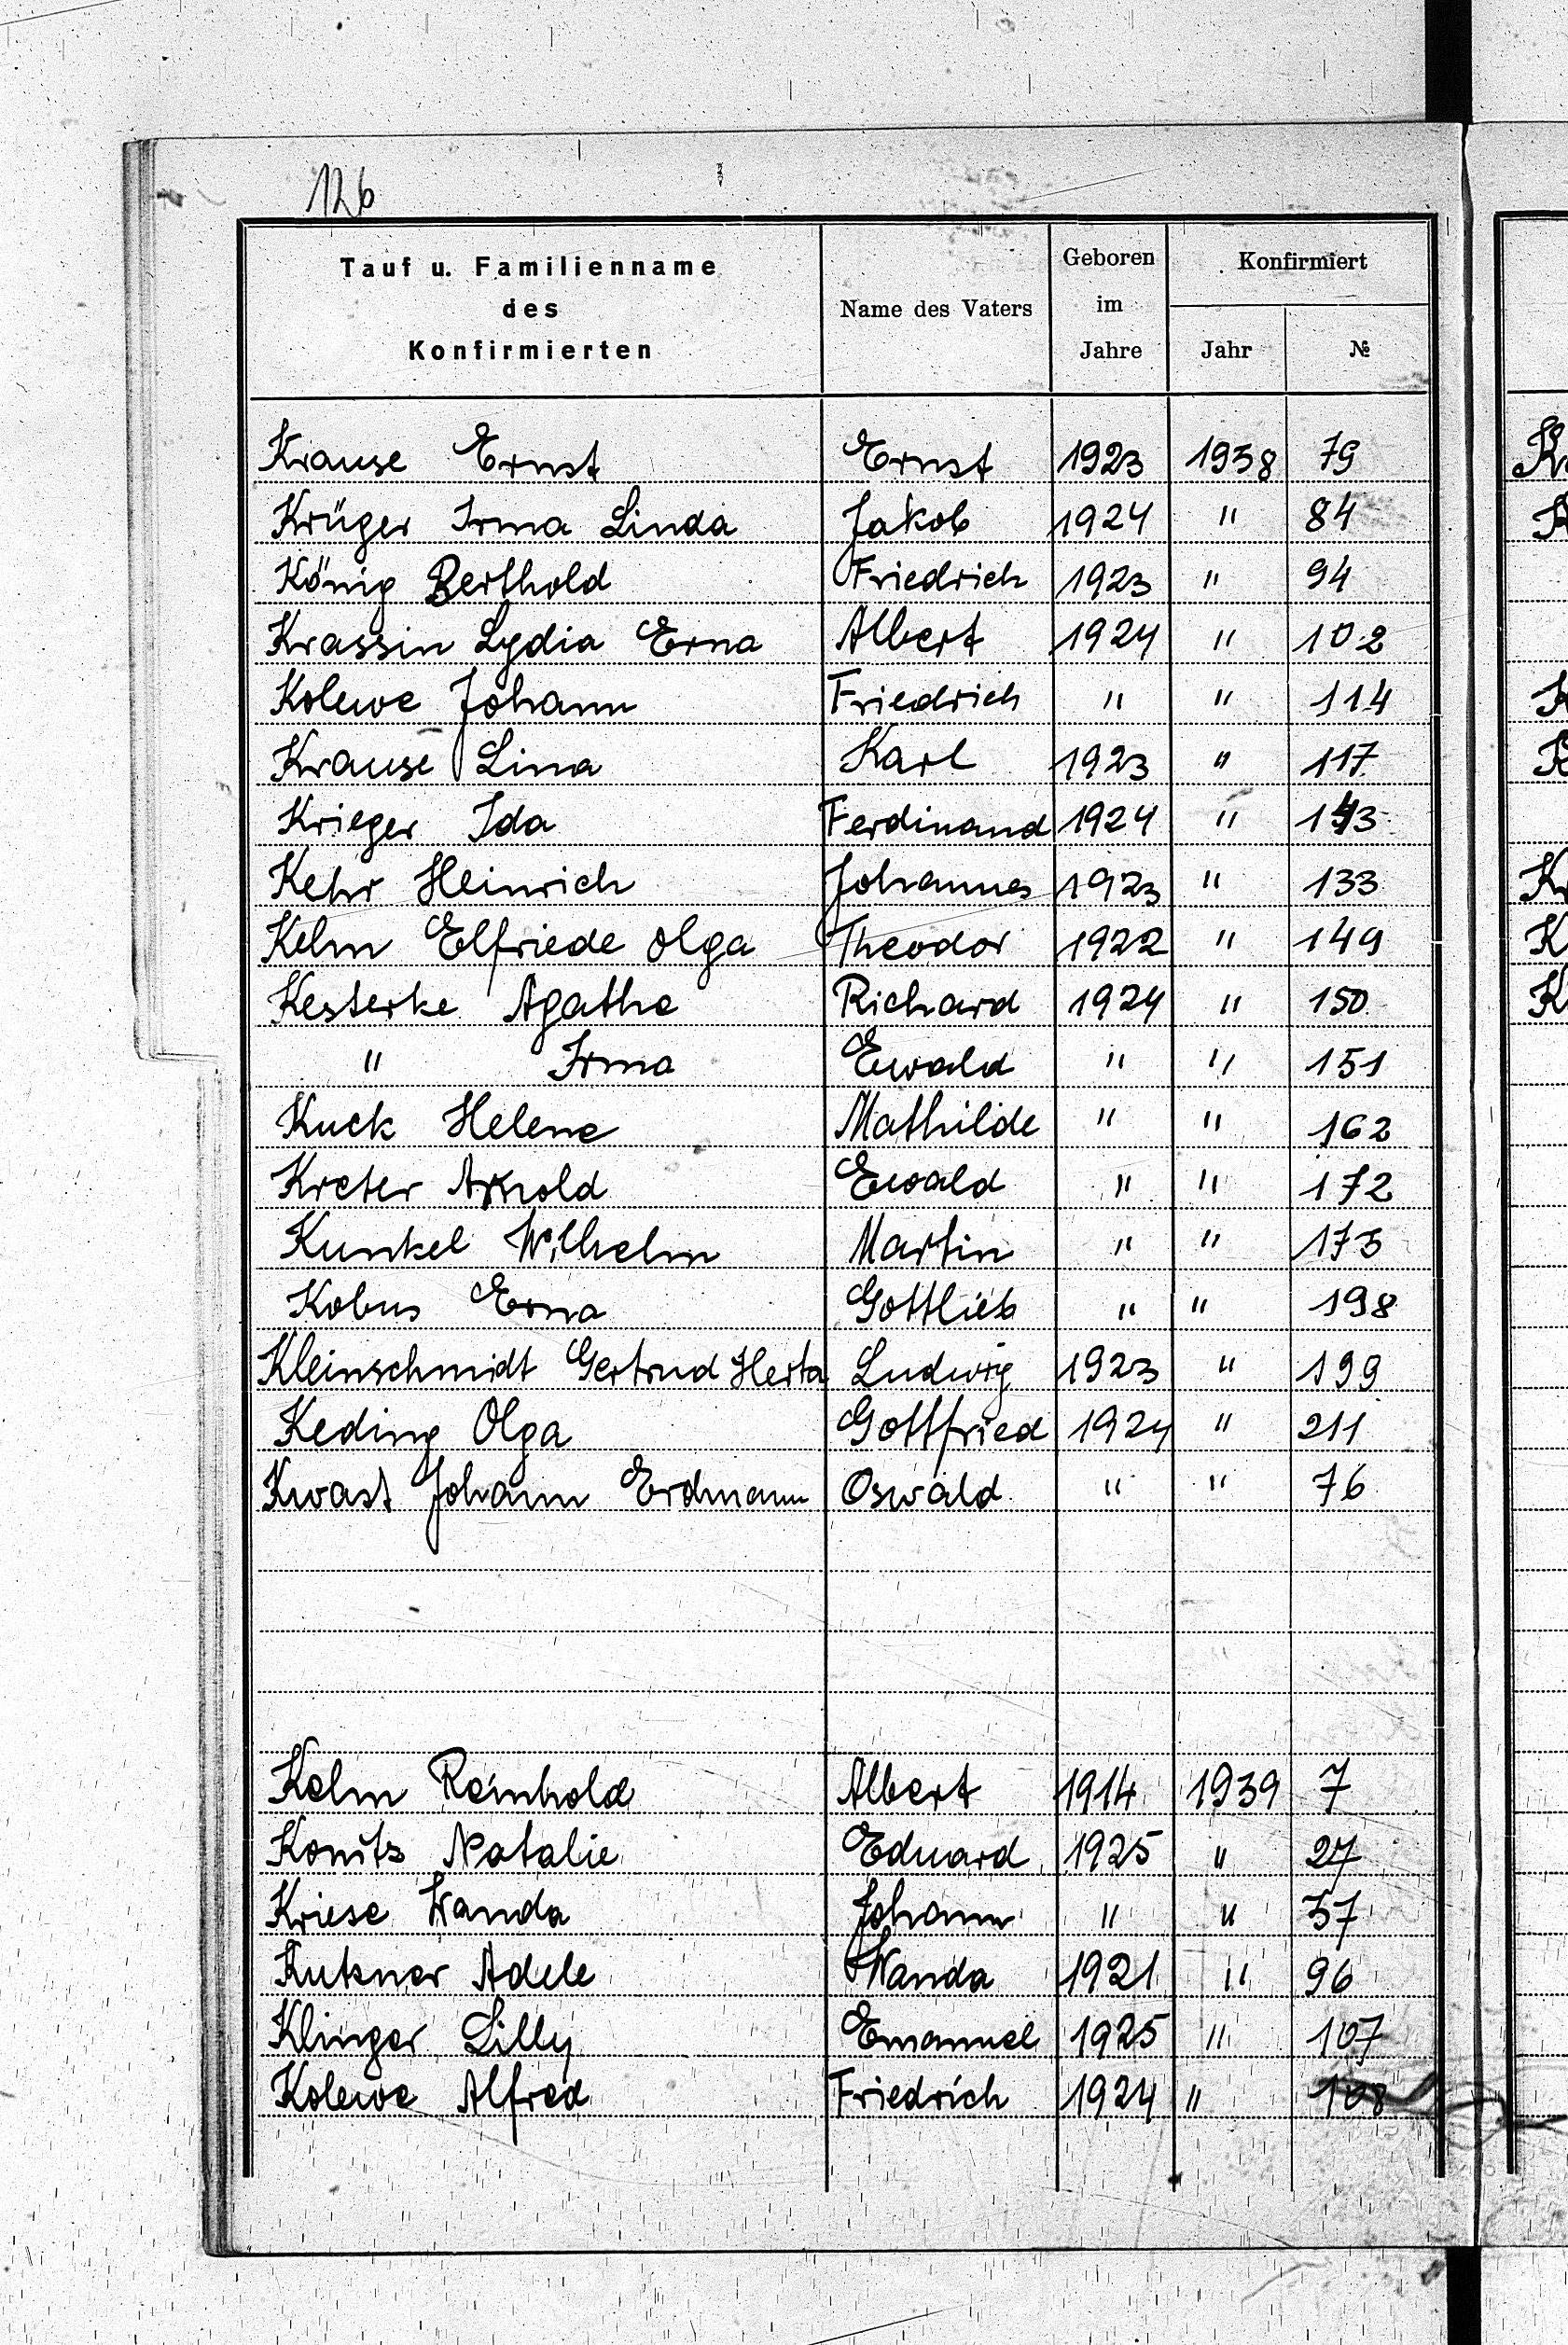 126
Tauf u. Familienname des Konfirmierten | Name des Vaters | Geboren im Jahre | Konfirmiert Jahr | №
Krause Ernst | Ernst | 1923 | 1938 | 79
Krüger Irma Linda | Jakob | 1924 | " | 84
König Berthold | Friedrich | 1923 | " | 94
Krassin Lydia Erna | Albert | 1924 | " | 102
Kolewe Johann | Friedrich | " | " | 114
Krause Lina | Karl | 1923 | " | 117
Krieger Ida | Ferdinand | 1924 | " |
Kehr Heinrich | Johannes | 1923 | " | 133
Kelm Elfriede Olga | Theodor | 1922 | " | 149
Kesterke Agathe | Richard | 1924 | " | 150
" Irma | Ewald | " | " | 151
Kuck Helene | Mathilde | " | " | 162
Kreter Arnold | Ewald | " | " | 172
Kunkel Wilhelm | Martin | " | " | 173
Kobus Erna | Gottlieb | " | " | 198
Kleinschmidt Gertrud Herta | Ludwig | 1923 | " | 199
Keding Olga | Gottfried | 1924 | " | 211
Kwast Johann Erdmann | Oswald | " | " | 76
Kelm Reinhold | Albert | 1914 | 1939 | 7
Konitz Natalie | Eduard | 1925 | " | 27
Kriese Wanda | Johann | " | " | 37
Kutzner Adele | Wanda | 1921 | " | 96
Klinger Lilly | Emanuel | 1925 | " | 107
Kolewe Alfred | Friedrich | 1924 | " | 108